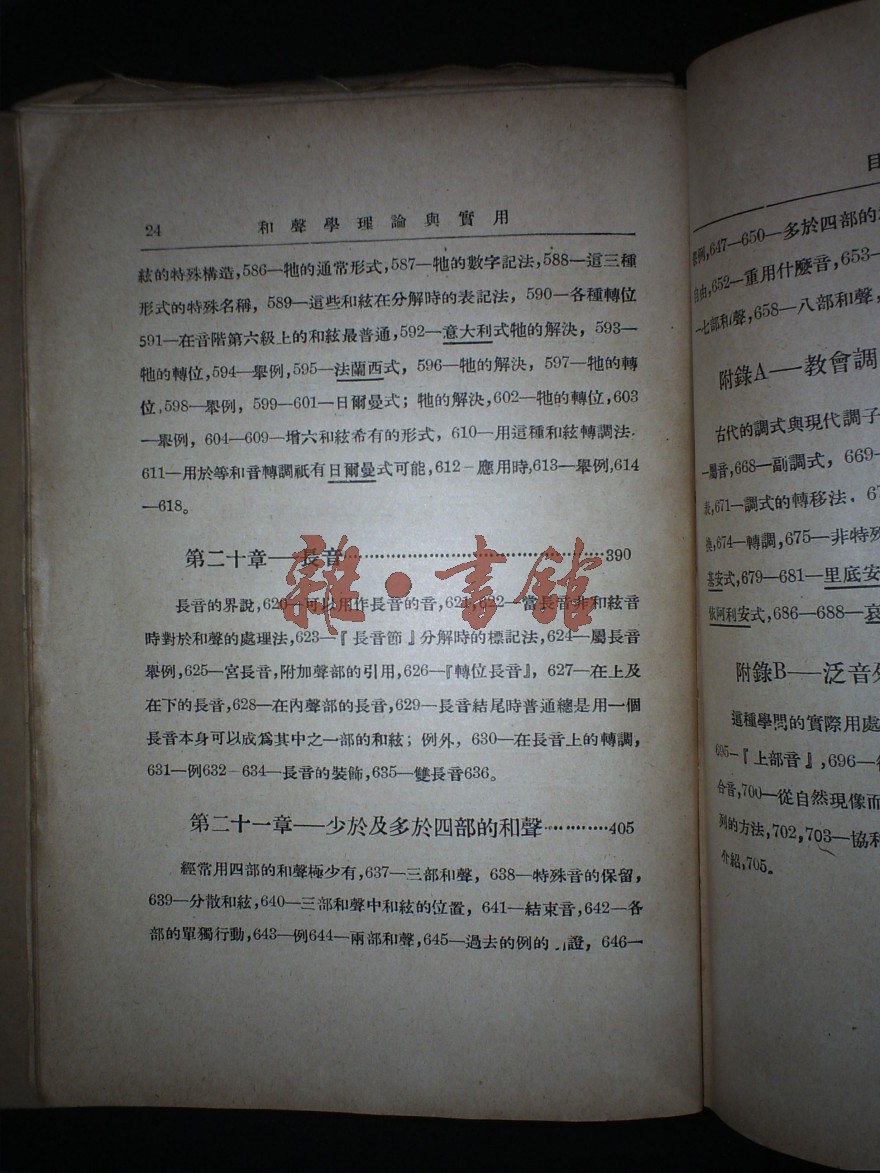 24 和聲學理論與實用
絃的特殊構造,586—牠的通常形式,587—牠的數字記法,588—這三種
形式的特殊名稱，589—這些和絃在分解時的表記法，590—各種轉位
591—在音階第六級上的和絃最普通,592—意大利式牠的解決，593—
牠的轉位,594—舉例,595—法蘭西式，596—牠的解決，597—牠的轉
位,598—舉例，599—601—日爾曼式；牠的解決,602—牠的轉位,603
—舉例，604—609—增六和絃希有的形式，610—用這種和絃轉調法.
611—用於等和音轉調祇有日爾曼式可能,612—應用時,613—舉例,614
—618。
第二十章——長音………………………………390
長音的界說,620—可以用作長音的音,621,622—當長音非和絃音
時對於和聲的處理法,623—『長音節』分解時的標記法,624—屬長音
舉例,625—宮長音,附加聲部的引用,626—『轉位長音』，627—在上及
在下的長音,628—在內聲部的長音,629—長音結尾時普通總是用一個
長音本身可以成爲其中之一部的和絃；例外，630—在長音上的轉調，
631—例632—634—長音的裝飾,635—雙長音636。
第二十一章——少於及多於四部的和聲…………405
經常用四部的和聲極少有,637—三部和聲，638—特殊音的保留，
639—分散和絃,640—三部和聲中和絃的位置，641—結束音,642—各
部的單獨行動,643—例644—兩部和聲,645—過去的例的 證，646—
雜·書館
目
例,647—650—多於四部的
自由,652—重用什麼音,653—
—七部和聲,658—八部和聲,
附錄A——教會調
古代的調式與現代調子
—屬音,668—副調式，669—
671—調式的轉移法．67
換,674—轉調,675—非特殊
基安式,679—681—里底安
依阿利安式,686—688—哀
附錄B——泛音
這種學問的實際用處
695—『上部音』,696—
合音,700—從自然現像而
列的方法,702,703—協和
介紹,705。